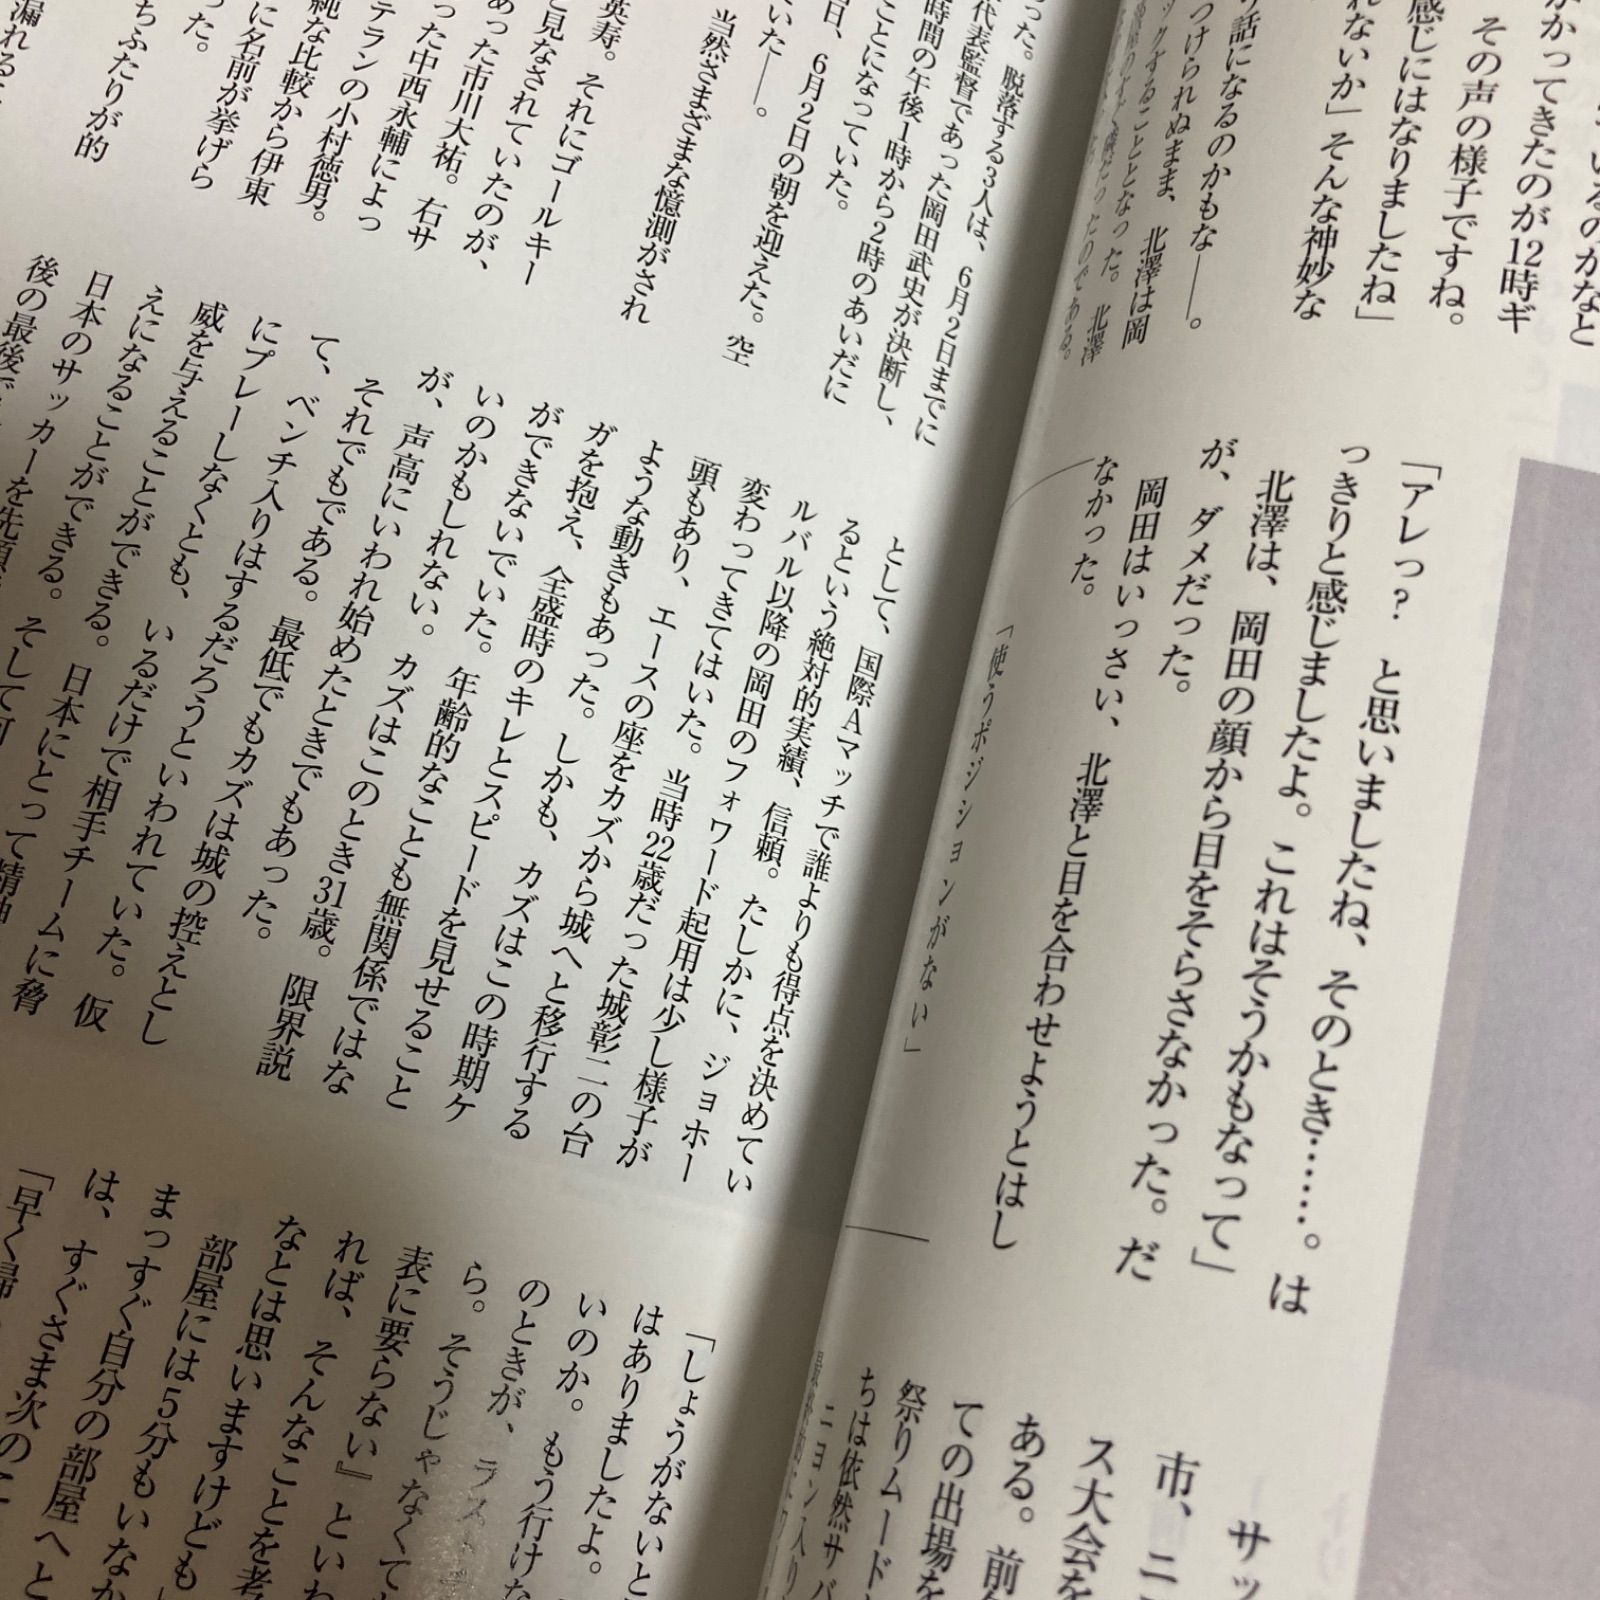 かってきたのが12時ギ
その声の様子ですね。
感じにはなりましたね」
れないか」そんな神妙な
話になるのかもな――。
つけられぬまま、北澤は岡
ックすることとなった。北澤
「アレっ? と思いましたね、そのとき……。は
っきりと感じましたよ。これはそうかもなって」
北澤は、岡田の顔から目をそらさなかった。だ
が、ダメだった。
岡田はいっさい、北澤と目を合わせようとはし
なかった。
「使うポジションがない」
サッ
市、ニ
ス大会を
ある。前
ての出場を
祭りムード
ちは依然サバ
ニヨン入り
った。脱落する3人は、6月2日までに
代表監督であった岡田武史が決断し、
時間の午後1時から2時のあいだに
ことになっていた。
日、6月2日の朝を迎えた。空
いた――。
当然さまざまな憶測がされ
英寿。それにゴールキー
と見なされていたのが、
あった市川大祐。右サ
った中西永輔によっ
テランの小村徳男。
純な比較から伊東
に名前が挙げら
た。
ちふたりが的
漏れる
として、国際Aマッチで誰よりも得点を決めてい
るという絶対的実績、信頼。たしかに、ジョホー
ルバル以降の岡田のフォワード起用は少し様子が
変わってきてはいた。当時22歳だった城彰二の台
頭もあり、エースの座をカズから城へと移行する
ような動きもあった。しかも、カズはこの時期ケ
ガを抱え、全盛時のキレとスピードを見せること
ができないでいた。年齢的なことも無関係ではな
いのかもしれない。カズはこのとき31歳。限界説
が、声高にいわれ始めたときでもあった。
それでもである。最低でもカズは城の控えとし
て、ベンチ入りはするだろうといわれていた。仮
にプレーしなくとも、いるだけで相手チームに脅
威を与えることができる。日本にとって精神
えになることができる。そして何
日本のサッカーを先頭
後の最後で
「しょうがないと
はありましたよ。
いのか。もう行けな
のときが、ラス
ら。そうじゃなくて
表に要らない』といわ
れば、そんなことを考
なとは思いますけども」
部屋には5分もいなか
まっすぐ自分の部屋へと
は、すぐさま次のこ
「早く帰